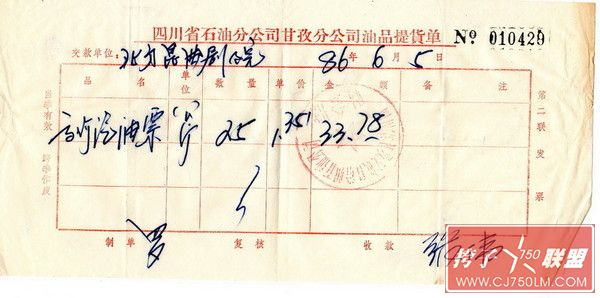 四川省石油分公司甘孜分公司油品提货单 № 010429
交款单位：北方昆曲剧院 86年6月5日
品名 单位 数量 单价 金额 备注
高价汽油票 公斤 25 1.351 33.78
当年有效 跨年作废
第二联 发票
制单 罗 复核 收款
750 联盟
WWW.CJ750LM.COM